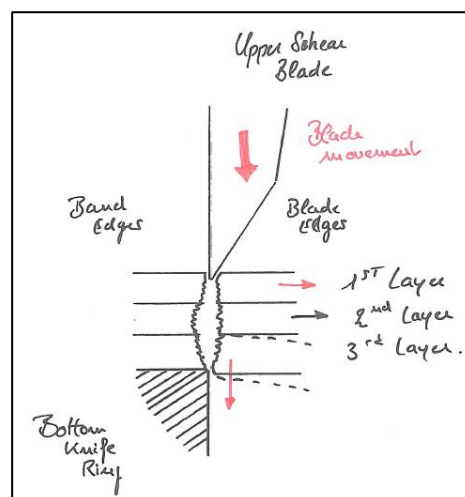 Upper Shear
Blade
Blade
movement
Band
Edges
Blade
Edges
1ST Layer
2nd Layer
3rd Layer.
Bottom
Knife
Ring